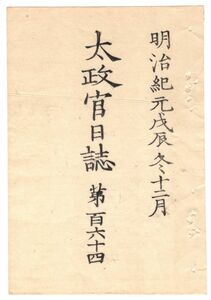 明治紀元戊辰冬十二月
太政官日誌 第百六十四